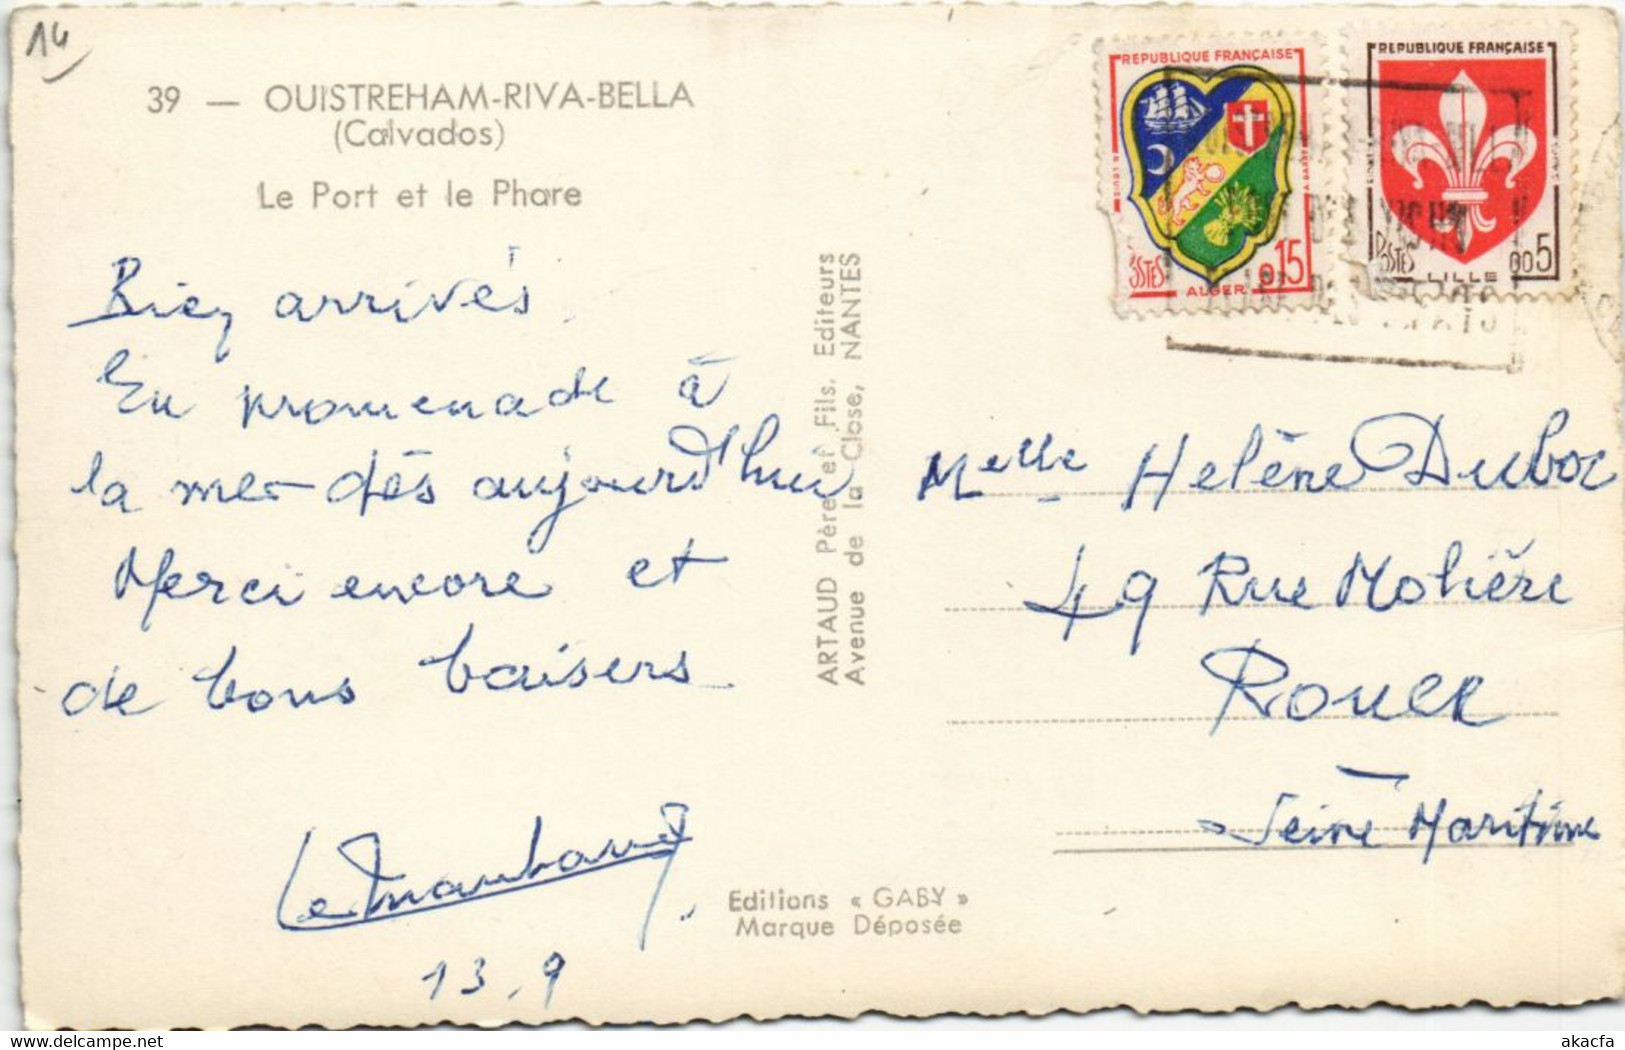 14
39 — OUISTREHAM-RIVA-BELLA
(Calvados)
Le Port et le Phare
Bien arrivés.
En promenade à
la mer dès aujourd'hui
Merci encore et
de bons baisers
13.9
ARTAUD Père et Fils, Editeurs
Avenue de la Close, NANTES
Editions « GABY »
Marque Déposée
REPUBLIQUE FRANÇAISE
POSTES
ALGER
0,15
REPUBLIQUE FRANÇAISE
POSTES
LILLE
0,05
Melle Hélène Duboc
49 Rue Molière
Rouen
Seine Maritime
akacfa